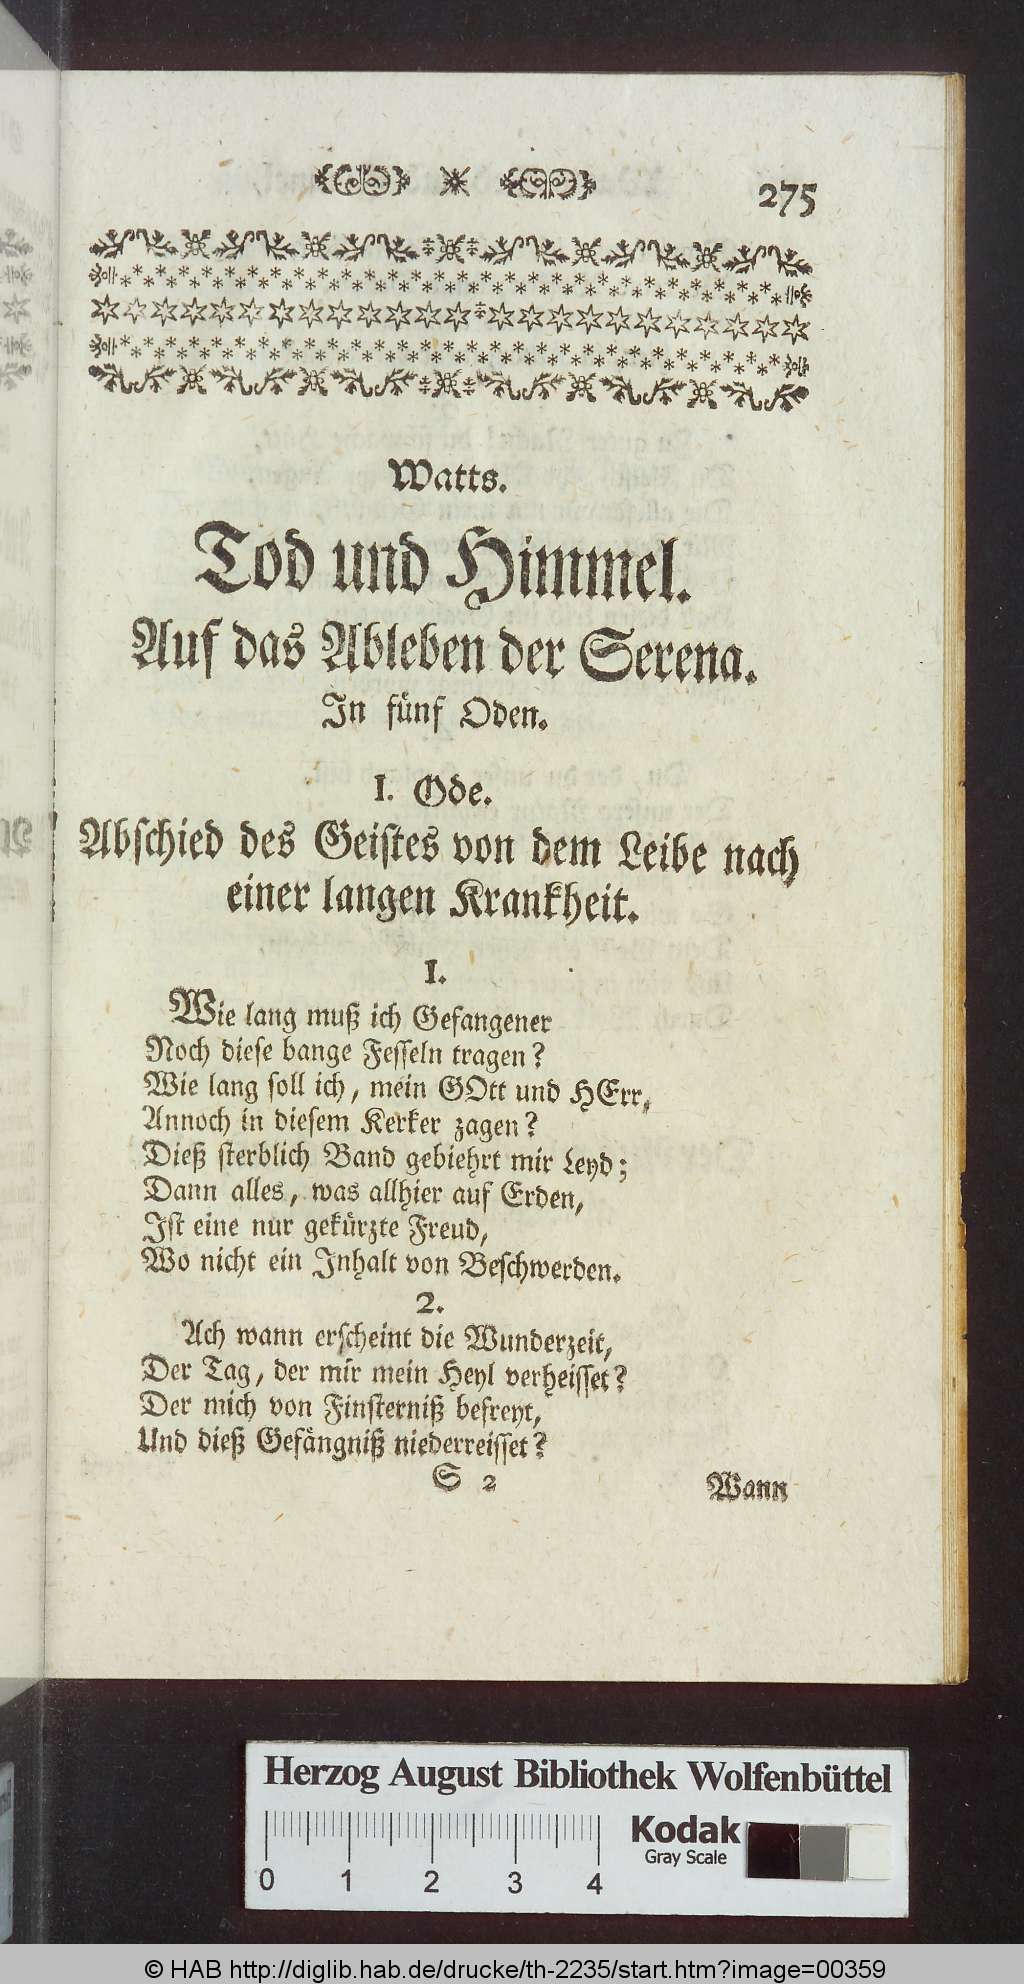 275
Watts.
Tod und Himmel.
Auf das Ableben der Serena.
In fünf Oden.
I. Ode.
Abschied des Geistes von dem Leibe nach
einer langen Krankheit.
I.
Wie lang muß ich Gefangener
Noch diese bange Fesseln tragen?
Wie lang soll ich, mein GOtt und HErr,
Annoch in diesem Kerker zagen?
Dieß sterblich Band gebiehrt mir Leyd;
Dann alles, was allhier auf Erden,
Ist eine nur gekürzte Freud,
Wo nicht ein Inhalt von Beschwerden.
2.
Ach wann erscheint die Wunderzeit,
Der Tag, der mir mein Heyl verheisset?
Der mich von Finsterniß befreyt,
Und dieß Gefängniß niederreisset?
S 2 Wann
Herzog August Bibliothek Wolfenbüttel
0 1 2 3 4
Kodak
Gray Scale
© HAB http://diglib.hab.de/drucke/th-2235/start.htm?image=00359